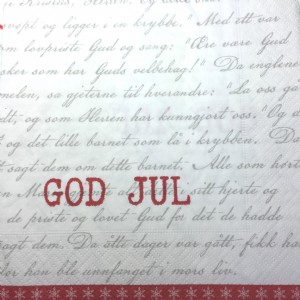 svøpt og ligger i en krybbe." Med ett var
om lovpriste Gud og sang: "Ære være Gud
sker som har Guds velbehag!" Da englene
melen, sa gjeterne til hverandre: "La oss gå
dt, og som Herren har kunngjort oss." Og
og det lille barnet som lå i krybben. Da
t sagt dem om dette barnet. Alle som hørt
GOD JUL
i sitt hjerte og
de priste og lovet Gud for det de hadde
sagt dem. Da åtte dager var gått, fikk han
før han ble unnfanget i mors liv.